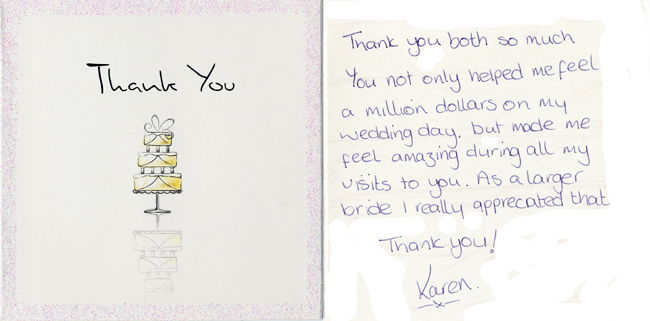 Thank You
Thank you both so much
You not only helped me feel
a million dollars on my
wedding day. but made me
feel amazing during all my
visits to you. As a larger
bride I really apprecated that
Thank you!
Karen.
x